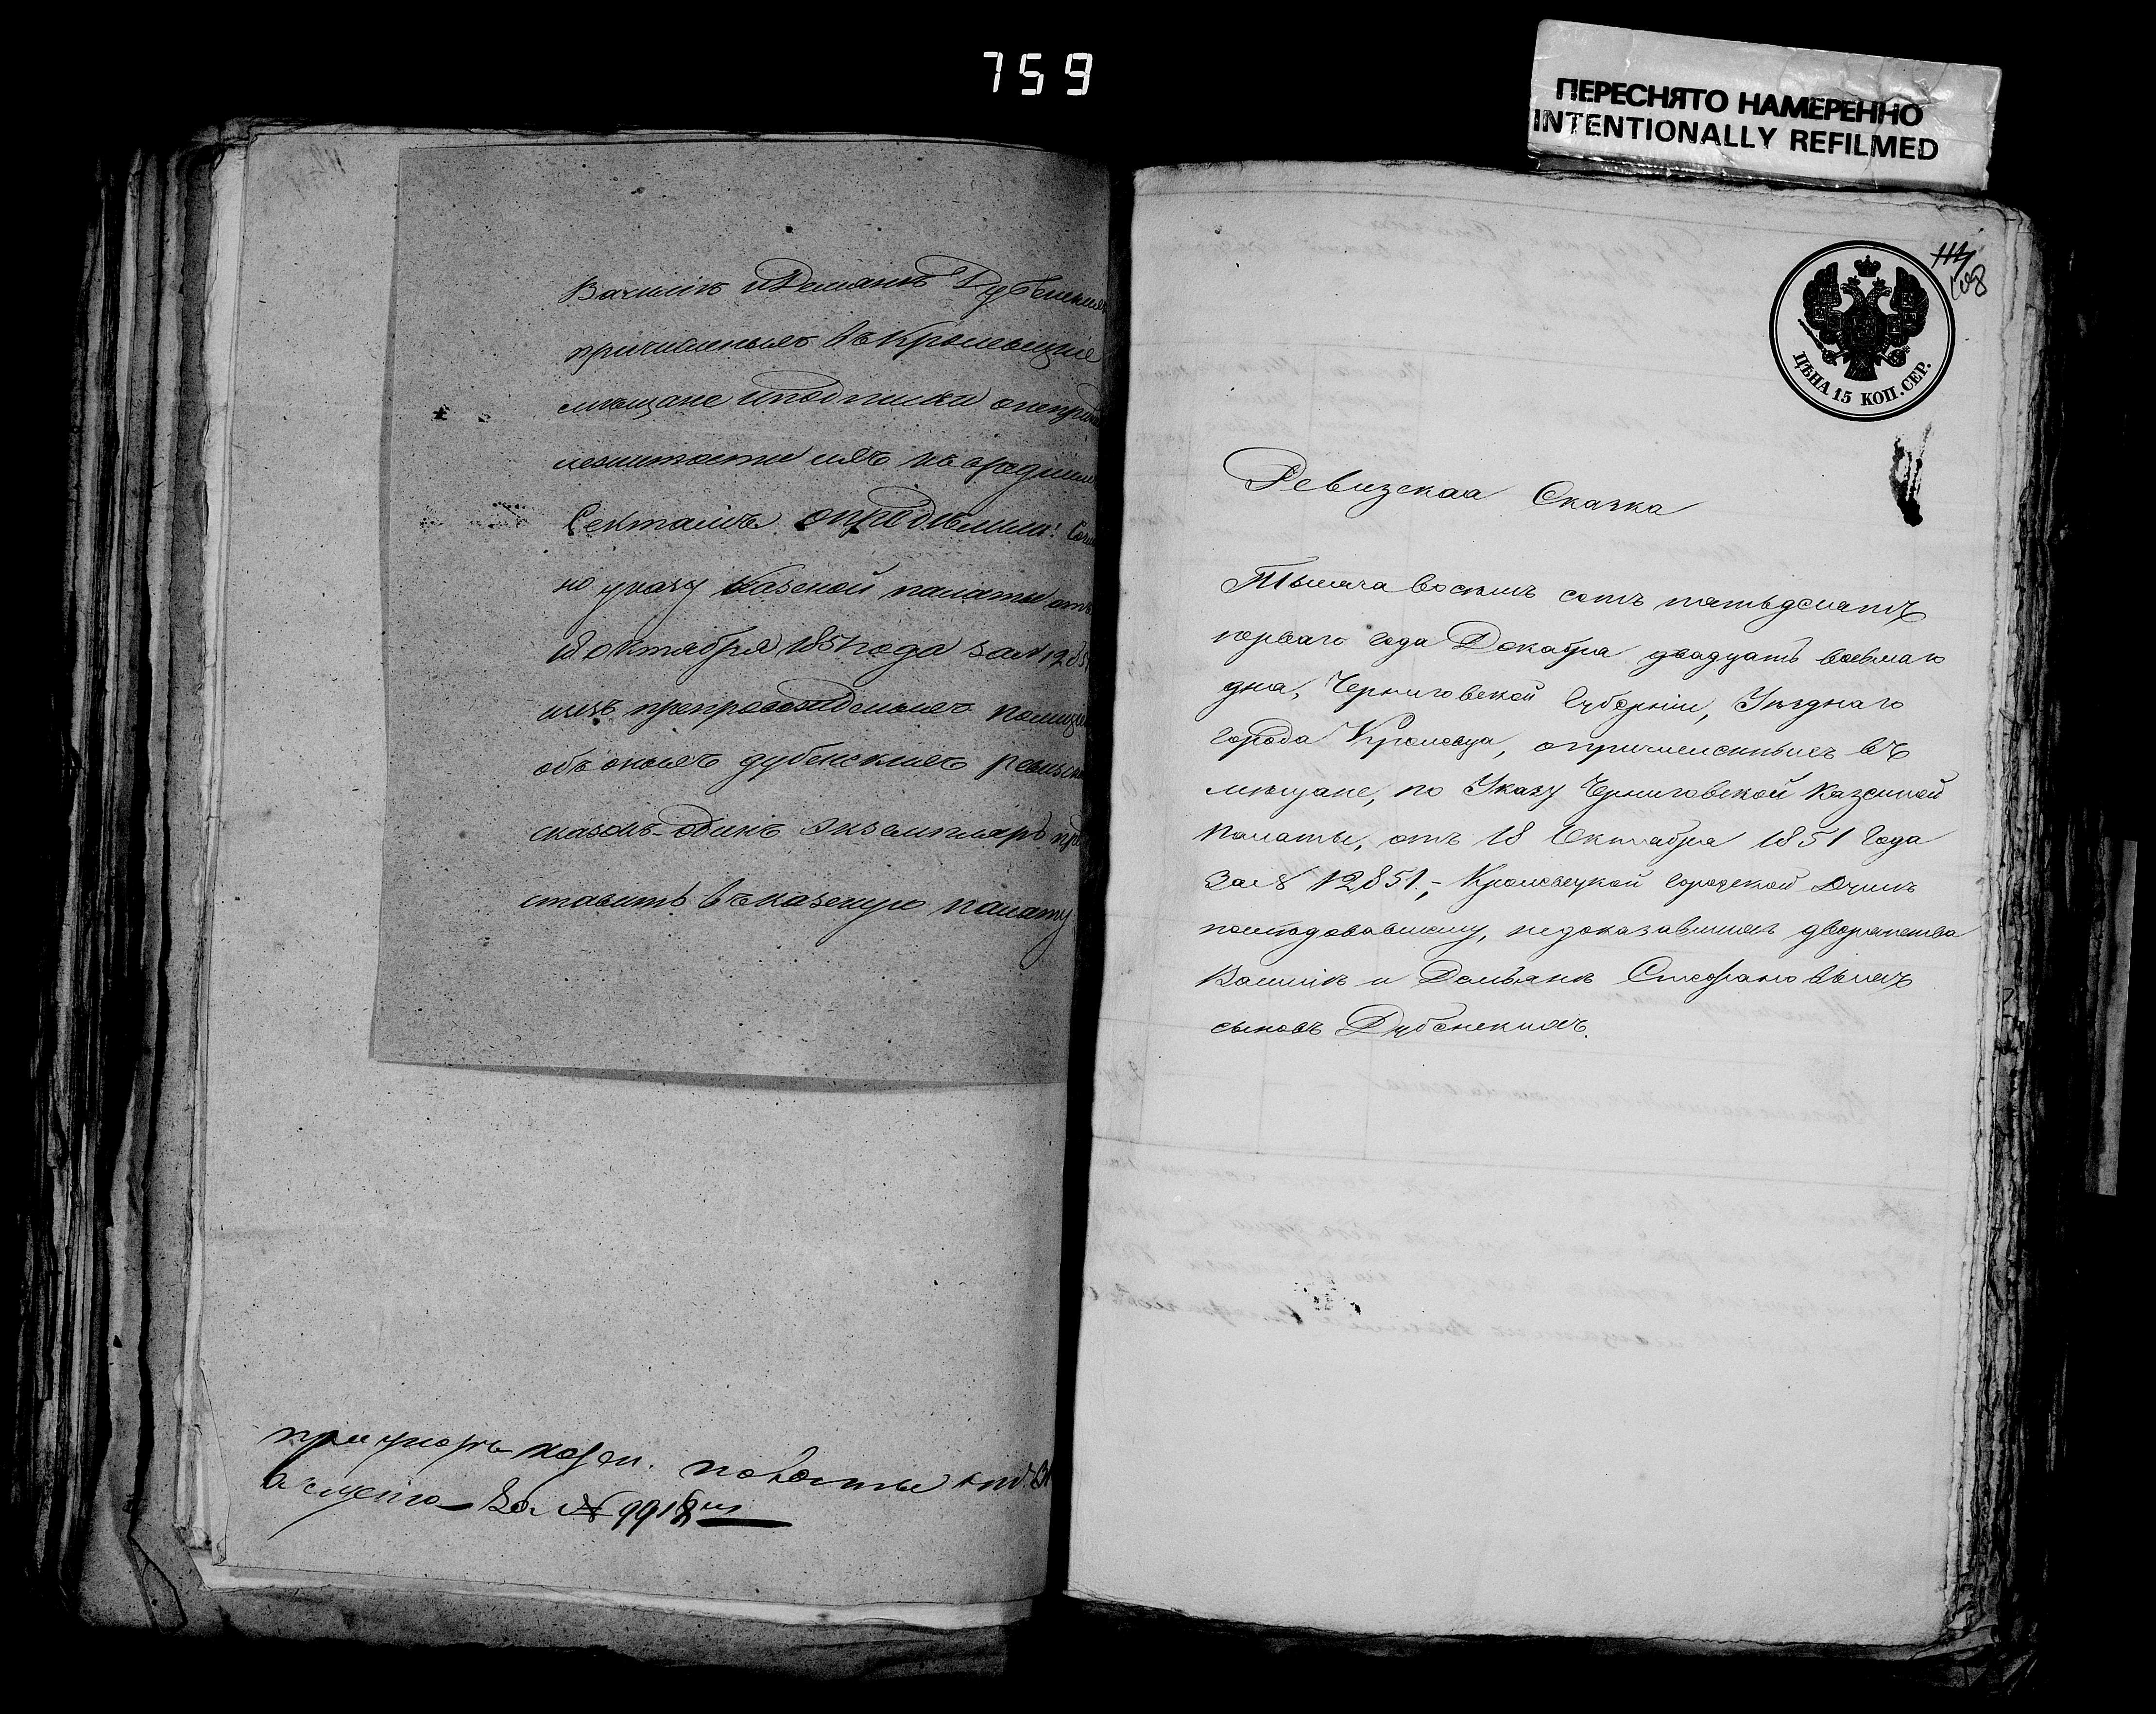 759
ПЕРЕСНЯТО НАМЕРЕННО
INTENTIONALLY REFILMED
Василія и Демьяна Дубенских
причисленых въ Кролевецкіе
мещане и подписки о непринад
лежитости ихъ къ вреднимъ
Сектамъ. определили: Со
но указу Казеной палаты отъ
18 октября 1851 года за № 1285
изъ препровожденыхъ
объ оныхъ дубенскихъ ревизских
сказокъ один экземпляръ пред
ставить въ казеную палату
при указе казен. палаты
за № 9918
114
108
ЦѢНА 15 КОП. СЕР.
Ревизская Сказка
Тысяча восемь сотъ пятьдесятъ
перваго года Декабра двадцать восьмаго
дна, Черниговской Губерніи, Уѣзднаго
города Кролевца, о причисленныхъ въ
мѣщане, по Указу Черниговской Казенной
Палаты, отъ 18 Октабра 1851 года
за № 12851, - Кролевецкой городской Думѣ
последовавшему, недоказавшихъ дворянства
Василіѣ и Демьянѣ Стефановыхъ
сыновъ Дубенскихъ.